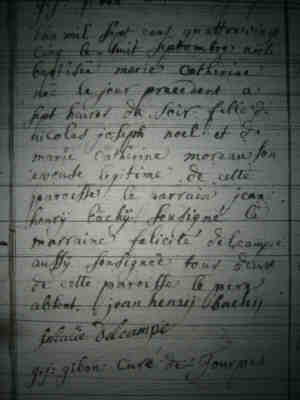 L'an mil sept cens quattrevingt
cinq le huit septembre at été
baptisée marie Catherine
née le jour precedent a
sept heures du soir fille de
nicolas joseph noel et de
marie catherine moreau son
epouse legitime de cette
paroisse le parrain jean
henry bachy soussigné la
marraine felicité delcampe
aussy soussignée tous deux
de cette paroisse le pere
absent. jean henry bachy
felicité delcampe
gibon Curé de